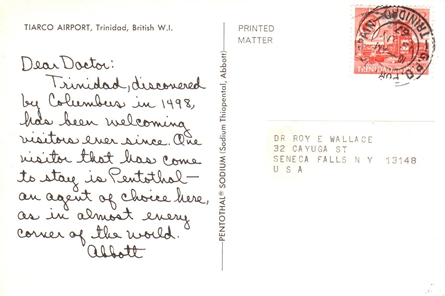 TIARCO AIRPORT, Trinidad, British W.I.
Dear Doctor:
Trinidad, discovered
by Columbus in 1498,
has been welcoming
visitors ever since. One
visitor that has come
to stay is Pentothal—
an agent of choice here,
as in almost every
corner of the world.
Abbott
PENTOTHAL® SODIUM (Sodium Thiopental, Abbott)
PRINTED
MATTER
G.P.O.
TRINIDAD
DR ROY E WALLACE
32 CAYUGA ST
SENECA FALLS N Y 13148
U S A